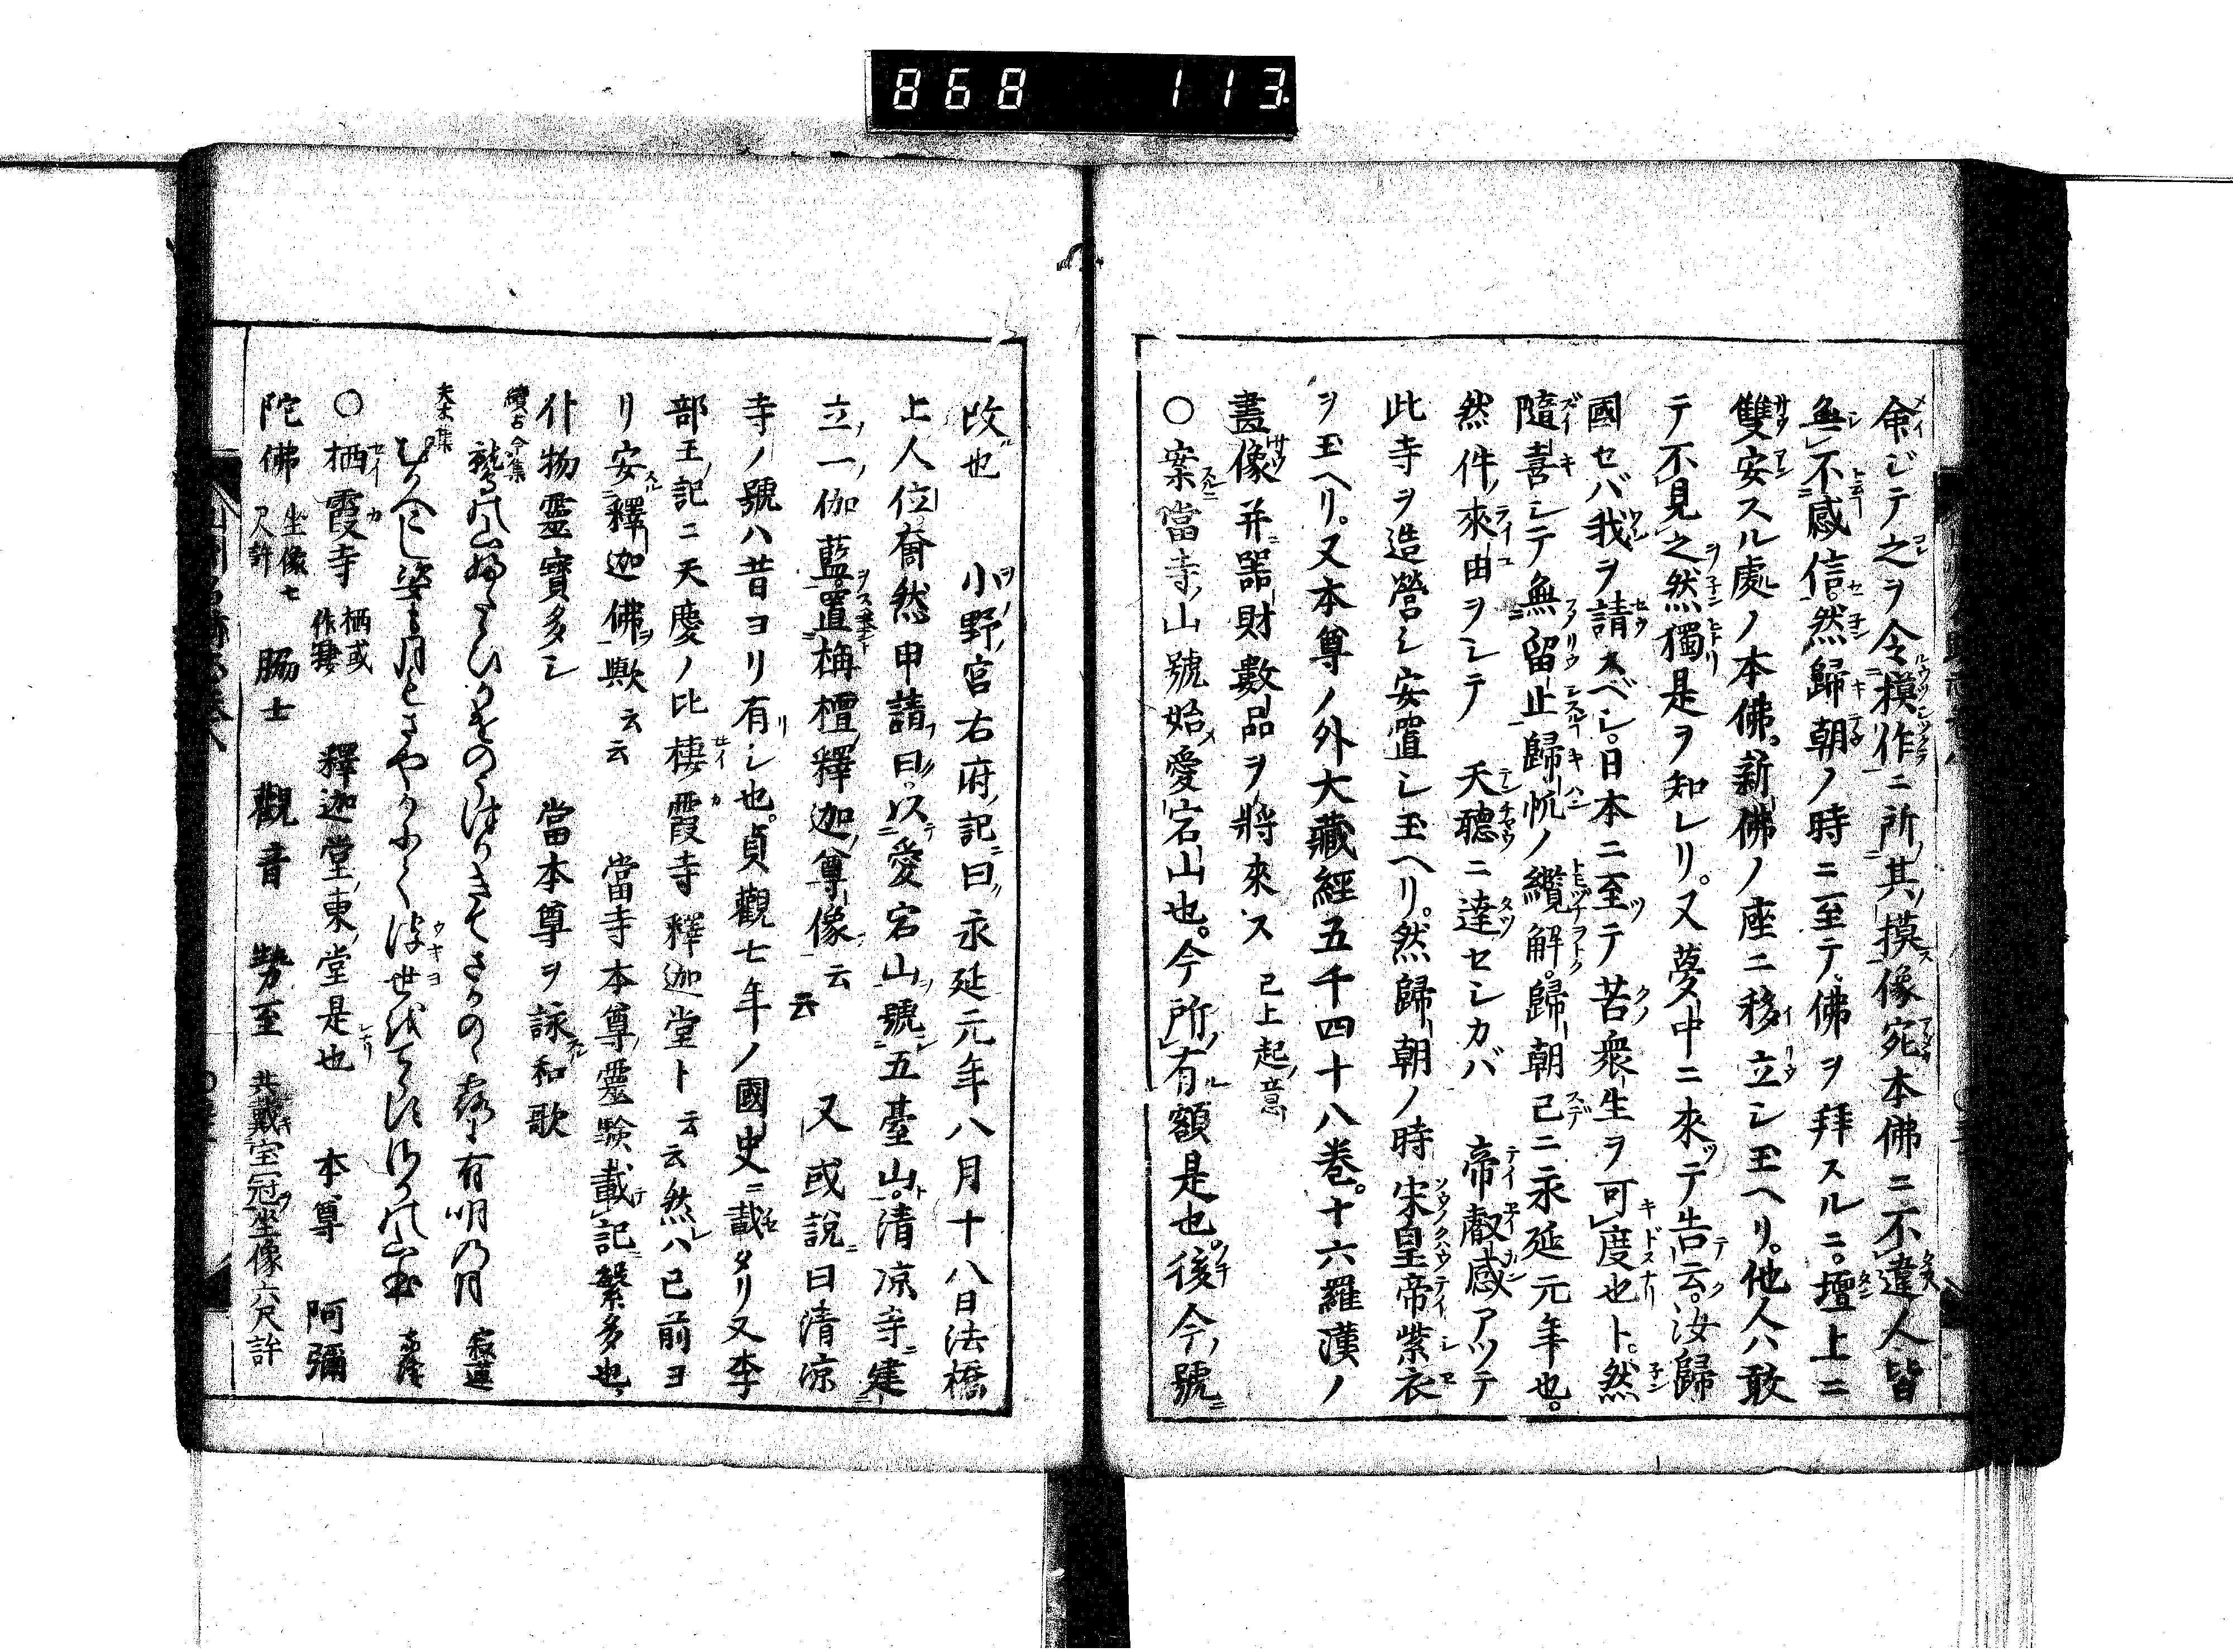 868 113.
命ジテ之ヲ令摸作ニ所其摸像宛本佛ニ不違人皆
無不感信然歸朝ノ時ニ至テ佛ヲ拜スルニ。壇上ニ
雙安スル處ノ本佛。新佛ノ座ニ移立シ玉ヘリ。他人ハ敢
テ不見之然獨是ヲ知レリ。又夢中ニ來テ告云。汝歸
國セバ我ヲ請スベシ。日本ニ至テ苦衆生ヲ可度也ト。然
隨喜シテ無留止歸帆ノ纜解。歸朝已ニ永延元年也。
然件來由ヲシテ 天聽ニ達セシカバ 帝叡感アツテ
此寺ヲ造營シ安置シ玉ヘリ。然歸朝ノ時宋皇帝紫衣
ヲ玉ヘリ。又本尊ノ外大藏經五千四十八卷。十六羅漢ノ
畫像并器財數品ヲ將來ス 已上起意
○案當寺山號始愛宕山也。今所有額是也。後今號
改也 小野宮右府記曰永延元年八月十八日法橋
上人位奝然申請曰以愛宕山號五臺山。清凉寺建
立一伽藍置栴檀釋迦尊像云云 又或說曰清凉
寺ノ號ハ昔ヨリ有シ也。貞觀七年ノ國史載タリ又李
部王記ニ天慶ノ比棲霞寺釋迦堂ト云云然ハ已前ヨ
リ安釋迦佛歟云云 當寺本尊靈驗載記繁多也
什物靈寶多シ 當本尊ヲ詠和歌
續古今集 有明の月 寂蓮
夫木集
○栖霞寺 栖或作棲 釋迦堂東堂是也 本尊 阿彌
陀佛 坐像七尺許 脇士 觀音 勢至 共戴宝冠坐像六尺許